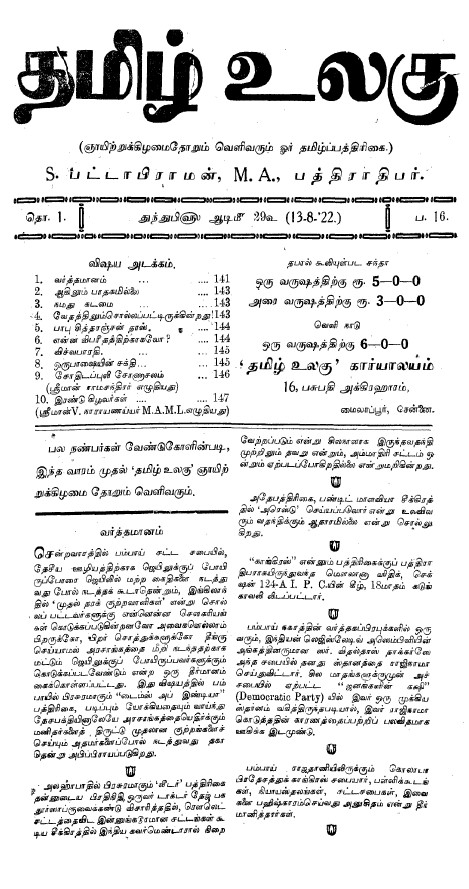 தமிழ் உலகு
(ஞாயிற்றுக்கிழமைதோறும் வெளிவரும் ஓர் தமிழ்ப்பத்திரிகை.)
S. பட்டாபிராமன், M. A., பத்திராதிபர்.
தொ. 1.
துந்துபிஹு ஆடிமீ 29உ (13-8-'22.)
ப. 16.
விஷய அடக்கம்.
1. வர்த்தமானம் .... 141
2. ஆகிலும் பாதகமில்லை .... 143
3. நமது கடமை .... 143
4. வேதத்திலும்சொல்லப்பட்டிருக்கின்றது! 143
5. பாபு சித்தரஞ்சன் தாஸ். .... 144
6. என்ன விபரீதத்திற்காகவோ? .... 144
7. விச்வபாரதி. .... 145
8. ஒருபாஷையின் சக்தி .... 145
9. சோதிடப்புலி சேஷாசலம் .... 146
(ஸ்ரீமான் ராமசந்திரர் எழுதியது)
10. இரண்டு கிழவர்கள் .... 147
(ஸ்ரீமான்V. நாராயணய்யர் M.A.M.L.எழுதியது)
பல நண்பர்கள் வேண்டுகோளின்படி,
இந்த வாரம் முதல் 'தமிழ் உலகு' ஞாயிற்
றுக்கிழமை தோறும் வெளிவரும்.
வர்த்தமானம்
சென்றவாரத்தில் பம்பாய் சட்ட சபையில்,
தேசிய ஊழியத்திற்காக ஜெயிலுக்குப் போயி
ருப்போரை ஜெயிலில் மற்ற கைதிகளை நடத்து
வது போல் நடத்தக் கூடாதென்றும், இங்கிலாந்
தில் 'முதல் தரக் குற்றவாளிகள்' என்று சொல்
லப் பட்டவர்களுக்கு என்னென்ன செளகரியங்
கள் கொடுக்கப்படுகின்றனவோ அவைகளெல்லாம்
பிறருக்கோ, பிறர் சொத்துக்களுக்கோ தீங்கு
செய்யாமல் அரசாங்கத்தை மீறி நடந்ததற்காக
மட்டும் ஜெயிலுக்குப் போயிருப்பவர்களுக்கும்
கொடுக்கப்படவேண்டும் என்ற ஒரு தீர்மானம்
கைக்கொள்ளப்பட்டது. இது விஷயத்தில் பம்
பாயில் பிரசுரமாகும் "டைம்ஸ் அப் இண்டியா"
பத்திரிகை, படிப்பும் யோக்கியதையும் வாய்ந்து
தேசபக்தியினாலேயே அரசாங்கத்தையெதிர்க்கும்
மனிதர்களைத் திருட்டு முதலான குற்றங்களைச்
செய்யும் அதமர்களைப்போல் நடத்துவது தகா
தென்று அபிப்பிராயப்படுகிறது.
அலஹாபாதில் பிரசுரமாகும் 'லீடர்' பத்திரிகை
தன்னுடைய பிரதிநிதி ஒருவர் டாக்டர் தேஜ் பக
தூர்ஸாப்ருவைகண்டு விசாரித்ததில், ரௌலெட்
சட்டத்தைவிட இன்னுங்கடூரமான சட்டங்கள் கூ
டிய சீக்கிரத்தில் இந்திய கவர்மெண்டாரால் நிறை
தபால் கூலியுள்பட சந்தா
ஒரு வருஷத்திற்கு ரூ. 5—0—0
அரை வருஷத்திற்கு ரூ. 3—0—0
வெளி நாடு
ஒரு வருஷத்திற்கு 6—0—0
'தமிழ் உலகு' கார்யாலயம்
16, பசுபதி அக்ரஹாரம்,
மைலாப்பூர், சென்னை.
வேற்றப்படும் என்று சிலகாலமாக இருந்தவதந்தி
முற்றிலும் தவறு என்றும், அம்மாதிரி சட்டம் ஒ
ன்றும் ஏற்படப்போகிறதில்லை என்றுமறிகின்றது.
அதேபத்திரிகை, பண்டிட் மாளவியா சீக்கிரத்
தில் 'அரெஸ்டு' செய்யப்படுவார் என்று உலவிவ
ரும் வதந்திக்கும் ஆதாரமில்லை என்று சொல்லு
கிறது.
"காங்கிரஸ்" என்னும் பத்திரிகைக்குப் பத்திரா
திபராகயிருந்துவந்த மௌலானா ஷாதிக், செக்
ஷன் 124-A I. P. C.யின் கீழ், 18மாதம் கடுங்
காவலி லிடப்பட்டார்.
பம்பாய் நகரத்தின் வர்த்தகப்பிரபுக்களில் ஒரு
வரும், இந்தியன் லெஜிஸ்லேடிவ் அஸெம்பிளியின்
அங்கத்தினருமான ஸர். விதல்தாஸ் தாக்கர்ஸே
அந்த சபையில் தனது ஸ்தானத்தை ராஜிநாமா
செய்துவிட்டார். சில மாதங்களுக்குமுன் அச்
சபையில் ஏற்பட்ட "ஜனங்களின் கக்ஷி"
(Democratic Party) யில் இவர் ஒரு முக்கிய
ஸ்தானம் வகித்திருந்தபடியால், இவர் ராஜிநாமா
கொடுத்ததின் காரணத்தைப்பற்றிப் பலவிதமாக
ஊகிக்க இடமுண்டு.
பம்பாய் ராஜதானியிலிருக்கும் கொலாபா
பிரதேசத்துக் காங்கிரஸ் சபையார், பள்ளிக்கூடங்
கள், நியாயஸ்தலங்கள், சட்டசபைகள், இவை
களை பஹிஷ்காரம்செய்வது அநுசிதம் என்று தீர்
மானித்தார்கள்.